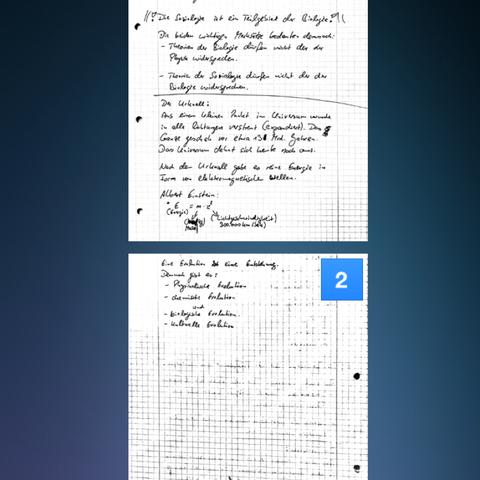 !!? Die Soziologie ist ein Teilgebiet der Biologie?!!
Die beiden wichtigen Merksätze bedeuten demnach:
- Theorien der Biologie dürfen nicht der der
Physik widersprechen.
- Theorie der Soziologie dürfen nicht der der
Biologie widersprechen.
Der Urknall:
Aus einem kleinen Punkt im Universum wurde
in alle Richtungen verstreut (expandiert). Das
Ganze geschah vor etwa Mrd. Jahren.
Das Universum dehnt sich heute noch aus.
Nach dem Urknall gabe es reine Energie in
Form von elektromagnetische Wellen.
Albert Einstein:
E = m · c²
(Energie)
Masse
(Lichtgeschwindigkeit)
300.000 km/sek)
2
Eine Evolution ist eine Entwicklung.
Demnach gibt es:
- Physikalische Evolution
- chemische Evolution
und
- Biologische Evolution
- kulturelle Evolution